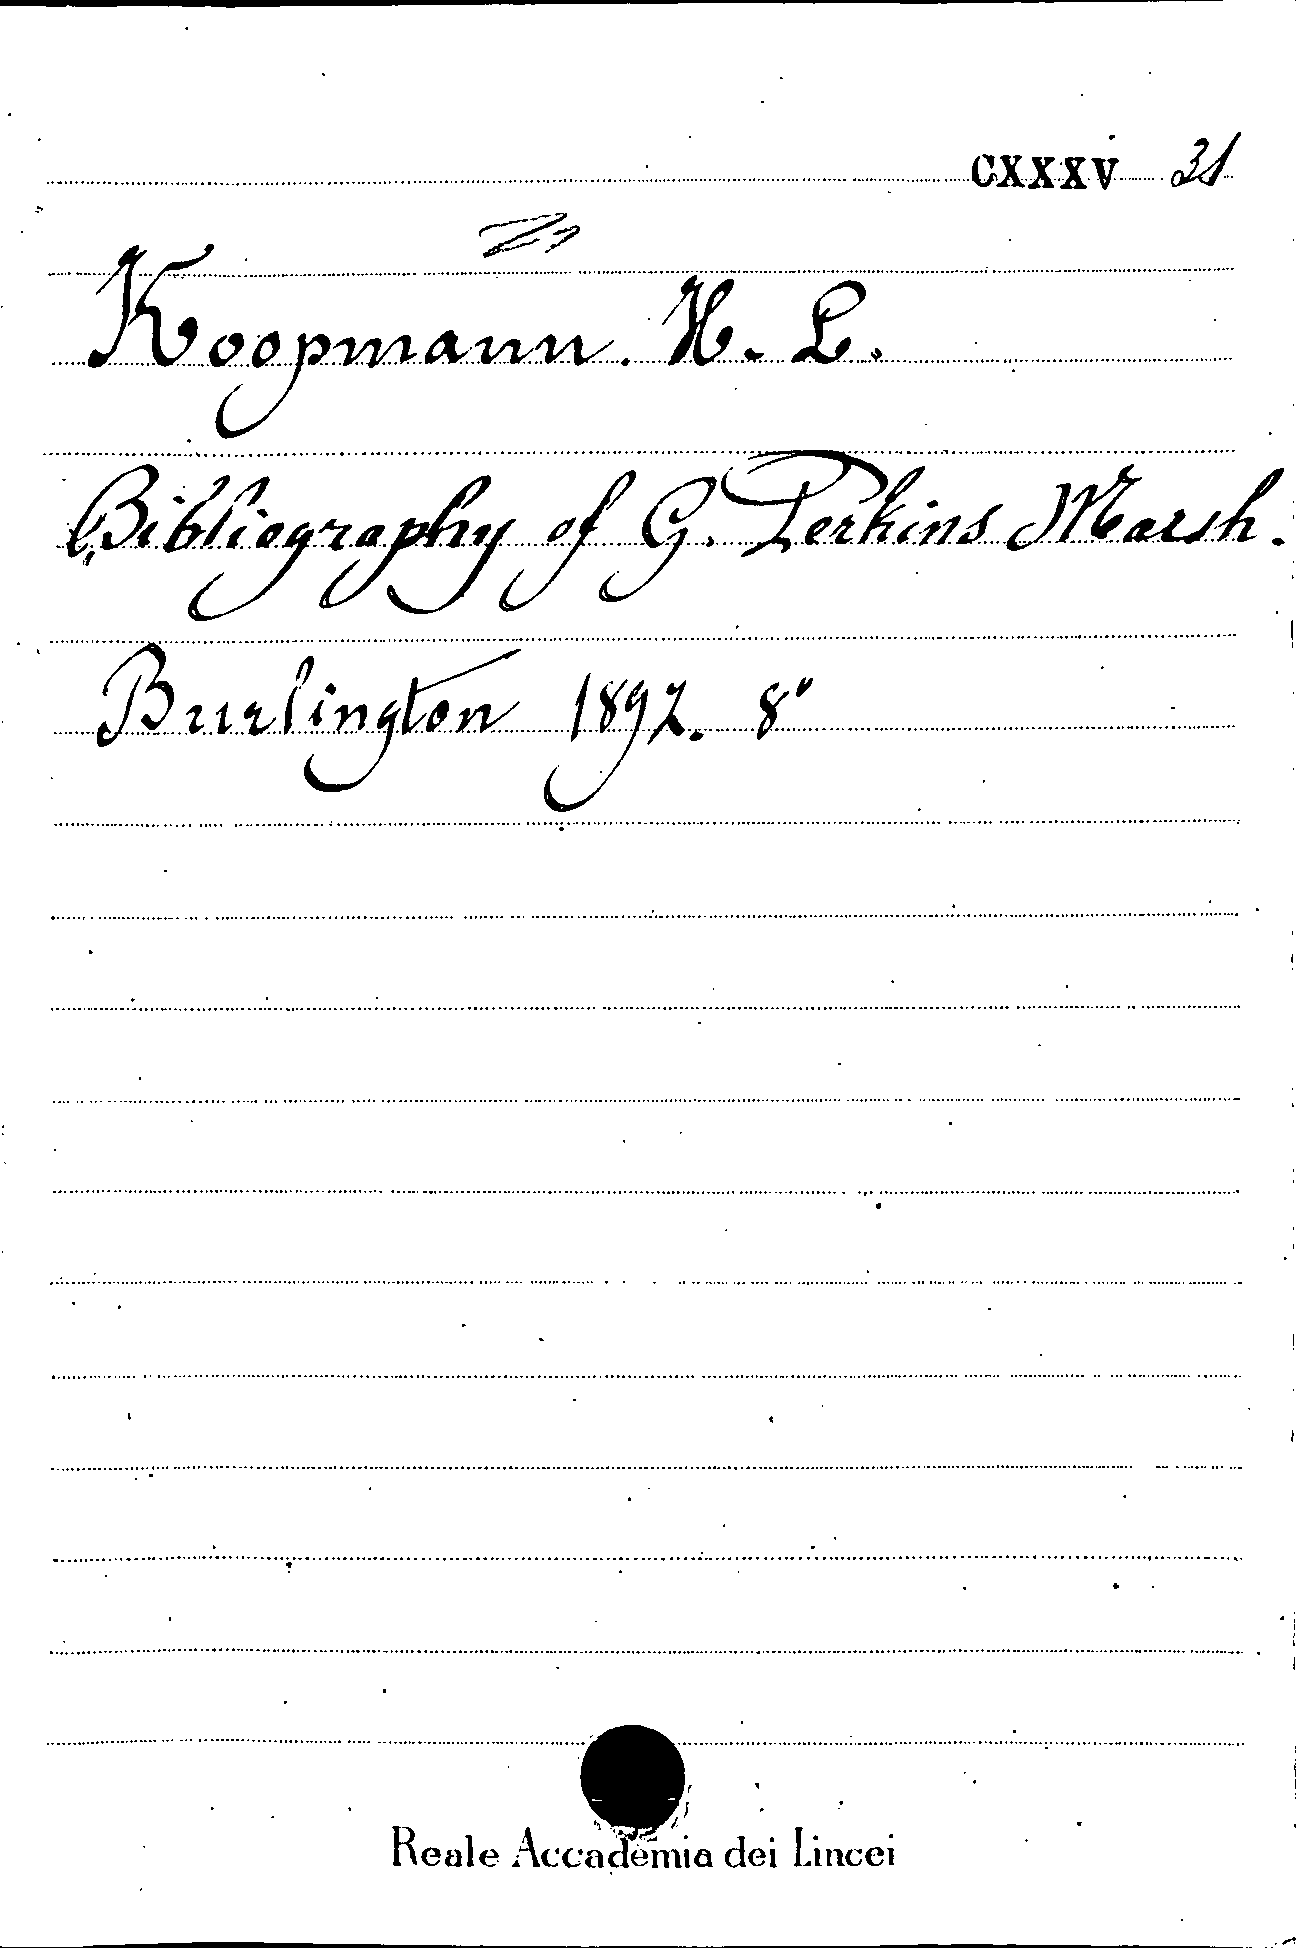 CXXXV 31
Koopmann. H. L.
Bibliography of G. Perkins Marsh.
Burlington 1892. 8°
Reale Accademia dei Lincei